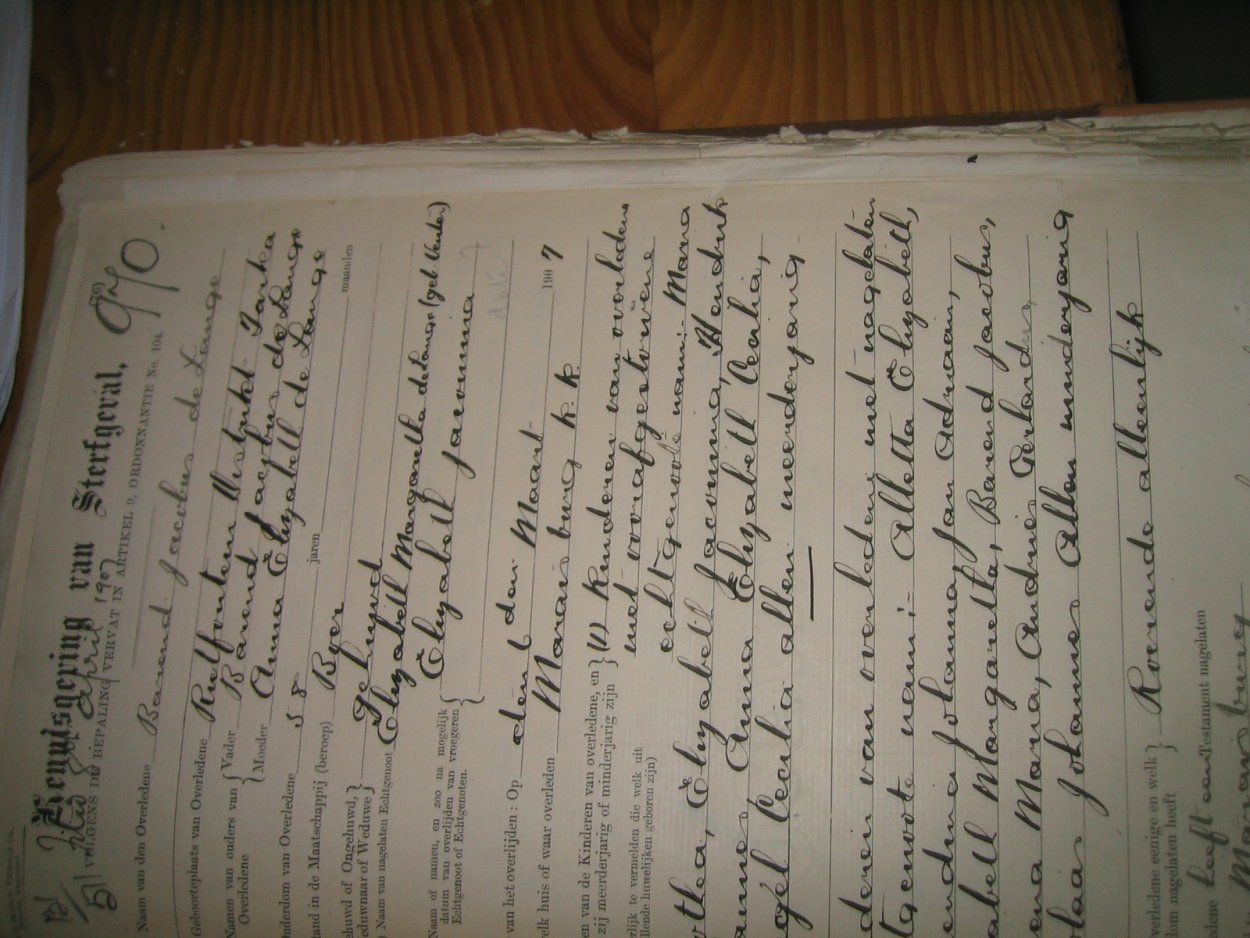 Kennisgeving van Sterfgeval,
(76)
970.
VOLGENS DE BEPALING VERVAT IN ARTIKEL 9, ORDONNANTIE No. 104
April 1907
Naam van den Overledene Barend Jacobus de Lange
Geboorteplaats van Overledene
Namen van ouders van Overledene { Vader Barend Jacobus de Lange
{ Moeder Anna Elizabeth de Lange
uderdom van Overledene 58 jaren maanden
tand in de Maatschappij (beroep) Boer
huwd of Ongehuwd, eduwnaar of Weduwe } Gehuwd
) Naam van nagelaten Echtgenoot Elizabeth Margaretha de Lange (geb. Venter)
Naam of namen, en zoo na mogelijk datum van overlijden van vroegeren Echtgenoot of Echtgenoten. } Elizabeth Jacomina
date?
van het overlijden: Op den 6 den Maart 1907
elk huis of waar overleden Maraisburg k. k.
en van de Kinderen van overledene, en zij meerderjarig of minderjarig zijn } (1) Kinderen van overleden
rlijk te vermelden die welk uit
llende huwelijken geboren zijn)
met voorafgestorvene
echtgenoote naml: Maria
thea, Elizabeth Jacomina, Hendrik
annes, Anna Elizabeth Cecilia,
Cecilia allen meerderjarig
deren van overleden met nagelaten
tgenoote naml:- Alletta Elizabeth,
endrina Johanna, Jan Adriaan,
abeth Margaretha, Barend Jacobus,
ena Maria, Andries Gerhardus,
olaas Johannes Allen minderjarig
verledene eenige en welk } dom nagelaten heeft Roerende alleenlijk
edene heeft een Testament nagelaten
Maraisburg